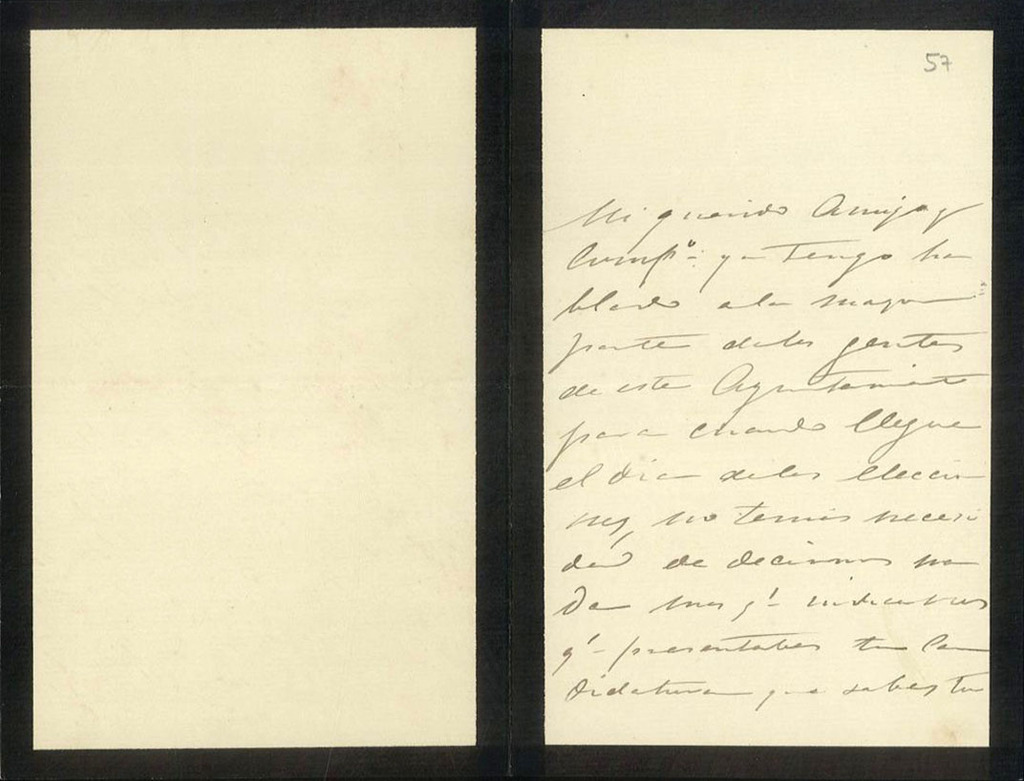 57
Mi querido Amigo y
Compº: ya tengo ha
blado a la mayor
parte de las gentes
de este Ayuntamiento
para cuando llegue
el dia de las eleccio
nes, no tenias necesi
dad de decirnos na
da mas q' indicarnos
q' presentabas tu Can
didatura que sabes tu